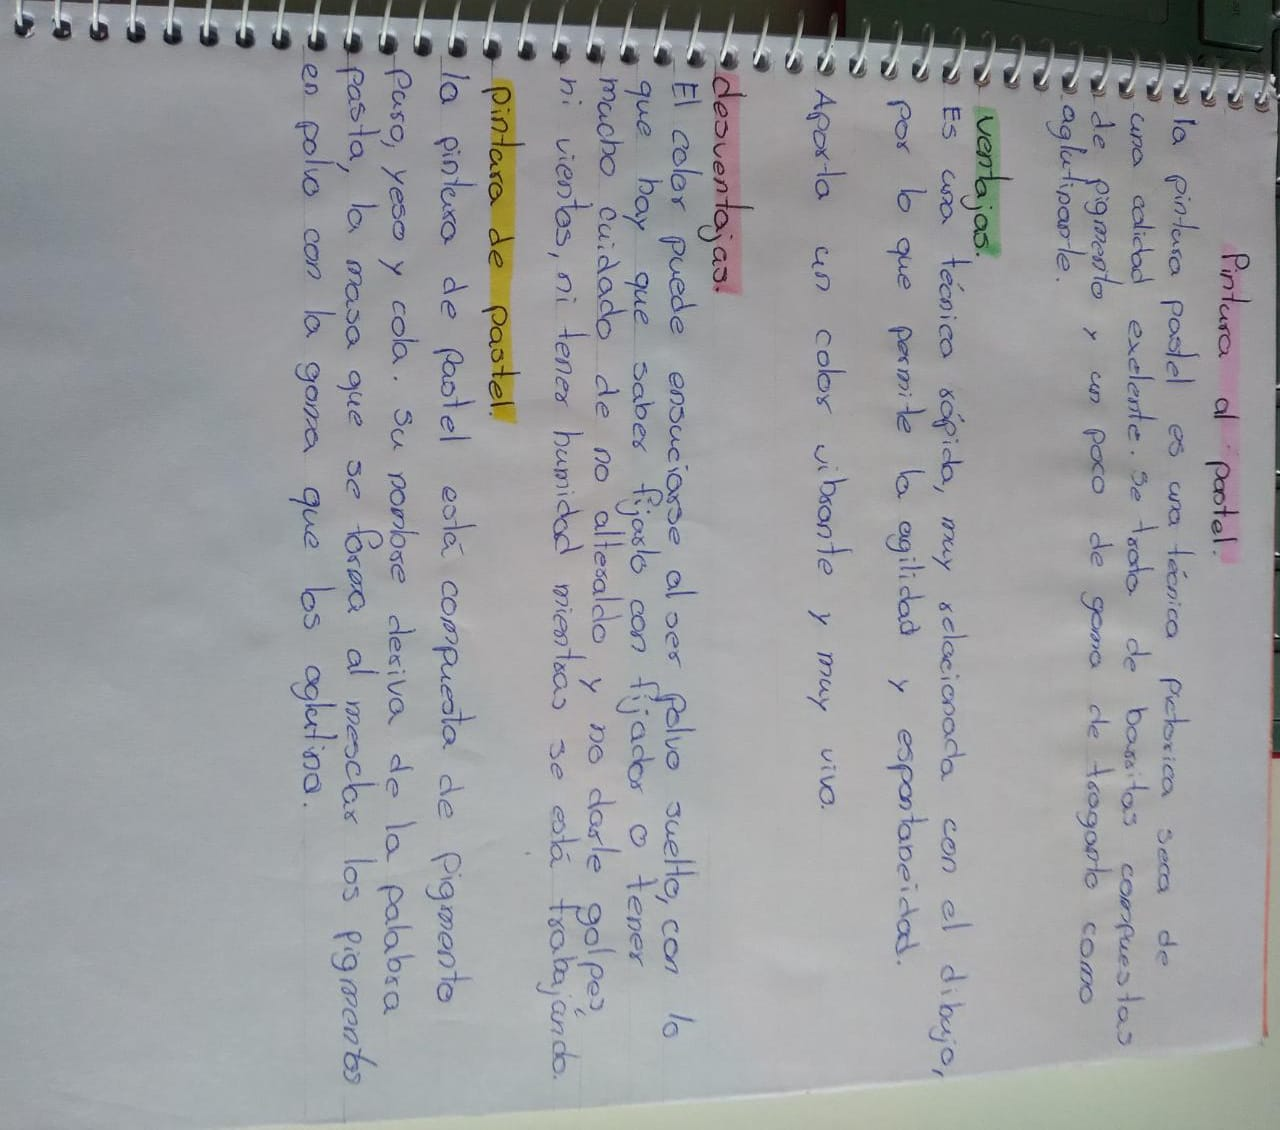 Pintura al pastel.
la pintura pastel es una técnica pictorica seca de
una calidad exelente. se trata de barritas compuestas
de pigmento y un poco de goma de traganto como
aglutinante.
ventajas.
Es una técnica rápida, muy relacionada con el dibujo,
por lo que permite la agilidad y espontaneidad.
Aporta un color vibrante y muy vivo.
desventajas.
El color puede ensuciarse al ser polvo suelto, con lo
que hay que saber fijarlo con fijador o tener
mucho cuidado de no alteraldo y no darle golpes,
ni vientos, ni tener humidad mientras se está trabajando.
pintura de pastel.
la pintura de pastel está compuesta de pigmento
puro, yeso y cola. su nombre deriva de la palabra
pasta, la masa que se forma al mesclar los pigmentos
en polvo con la goma que los aglutina.